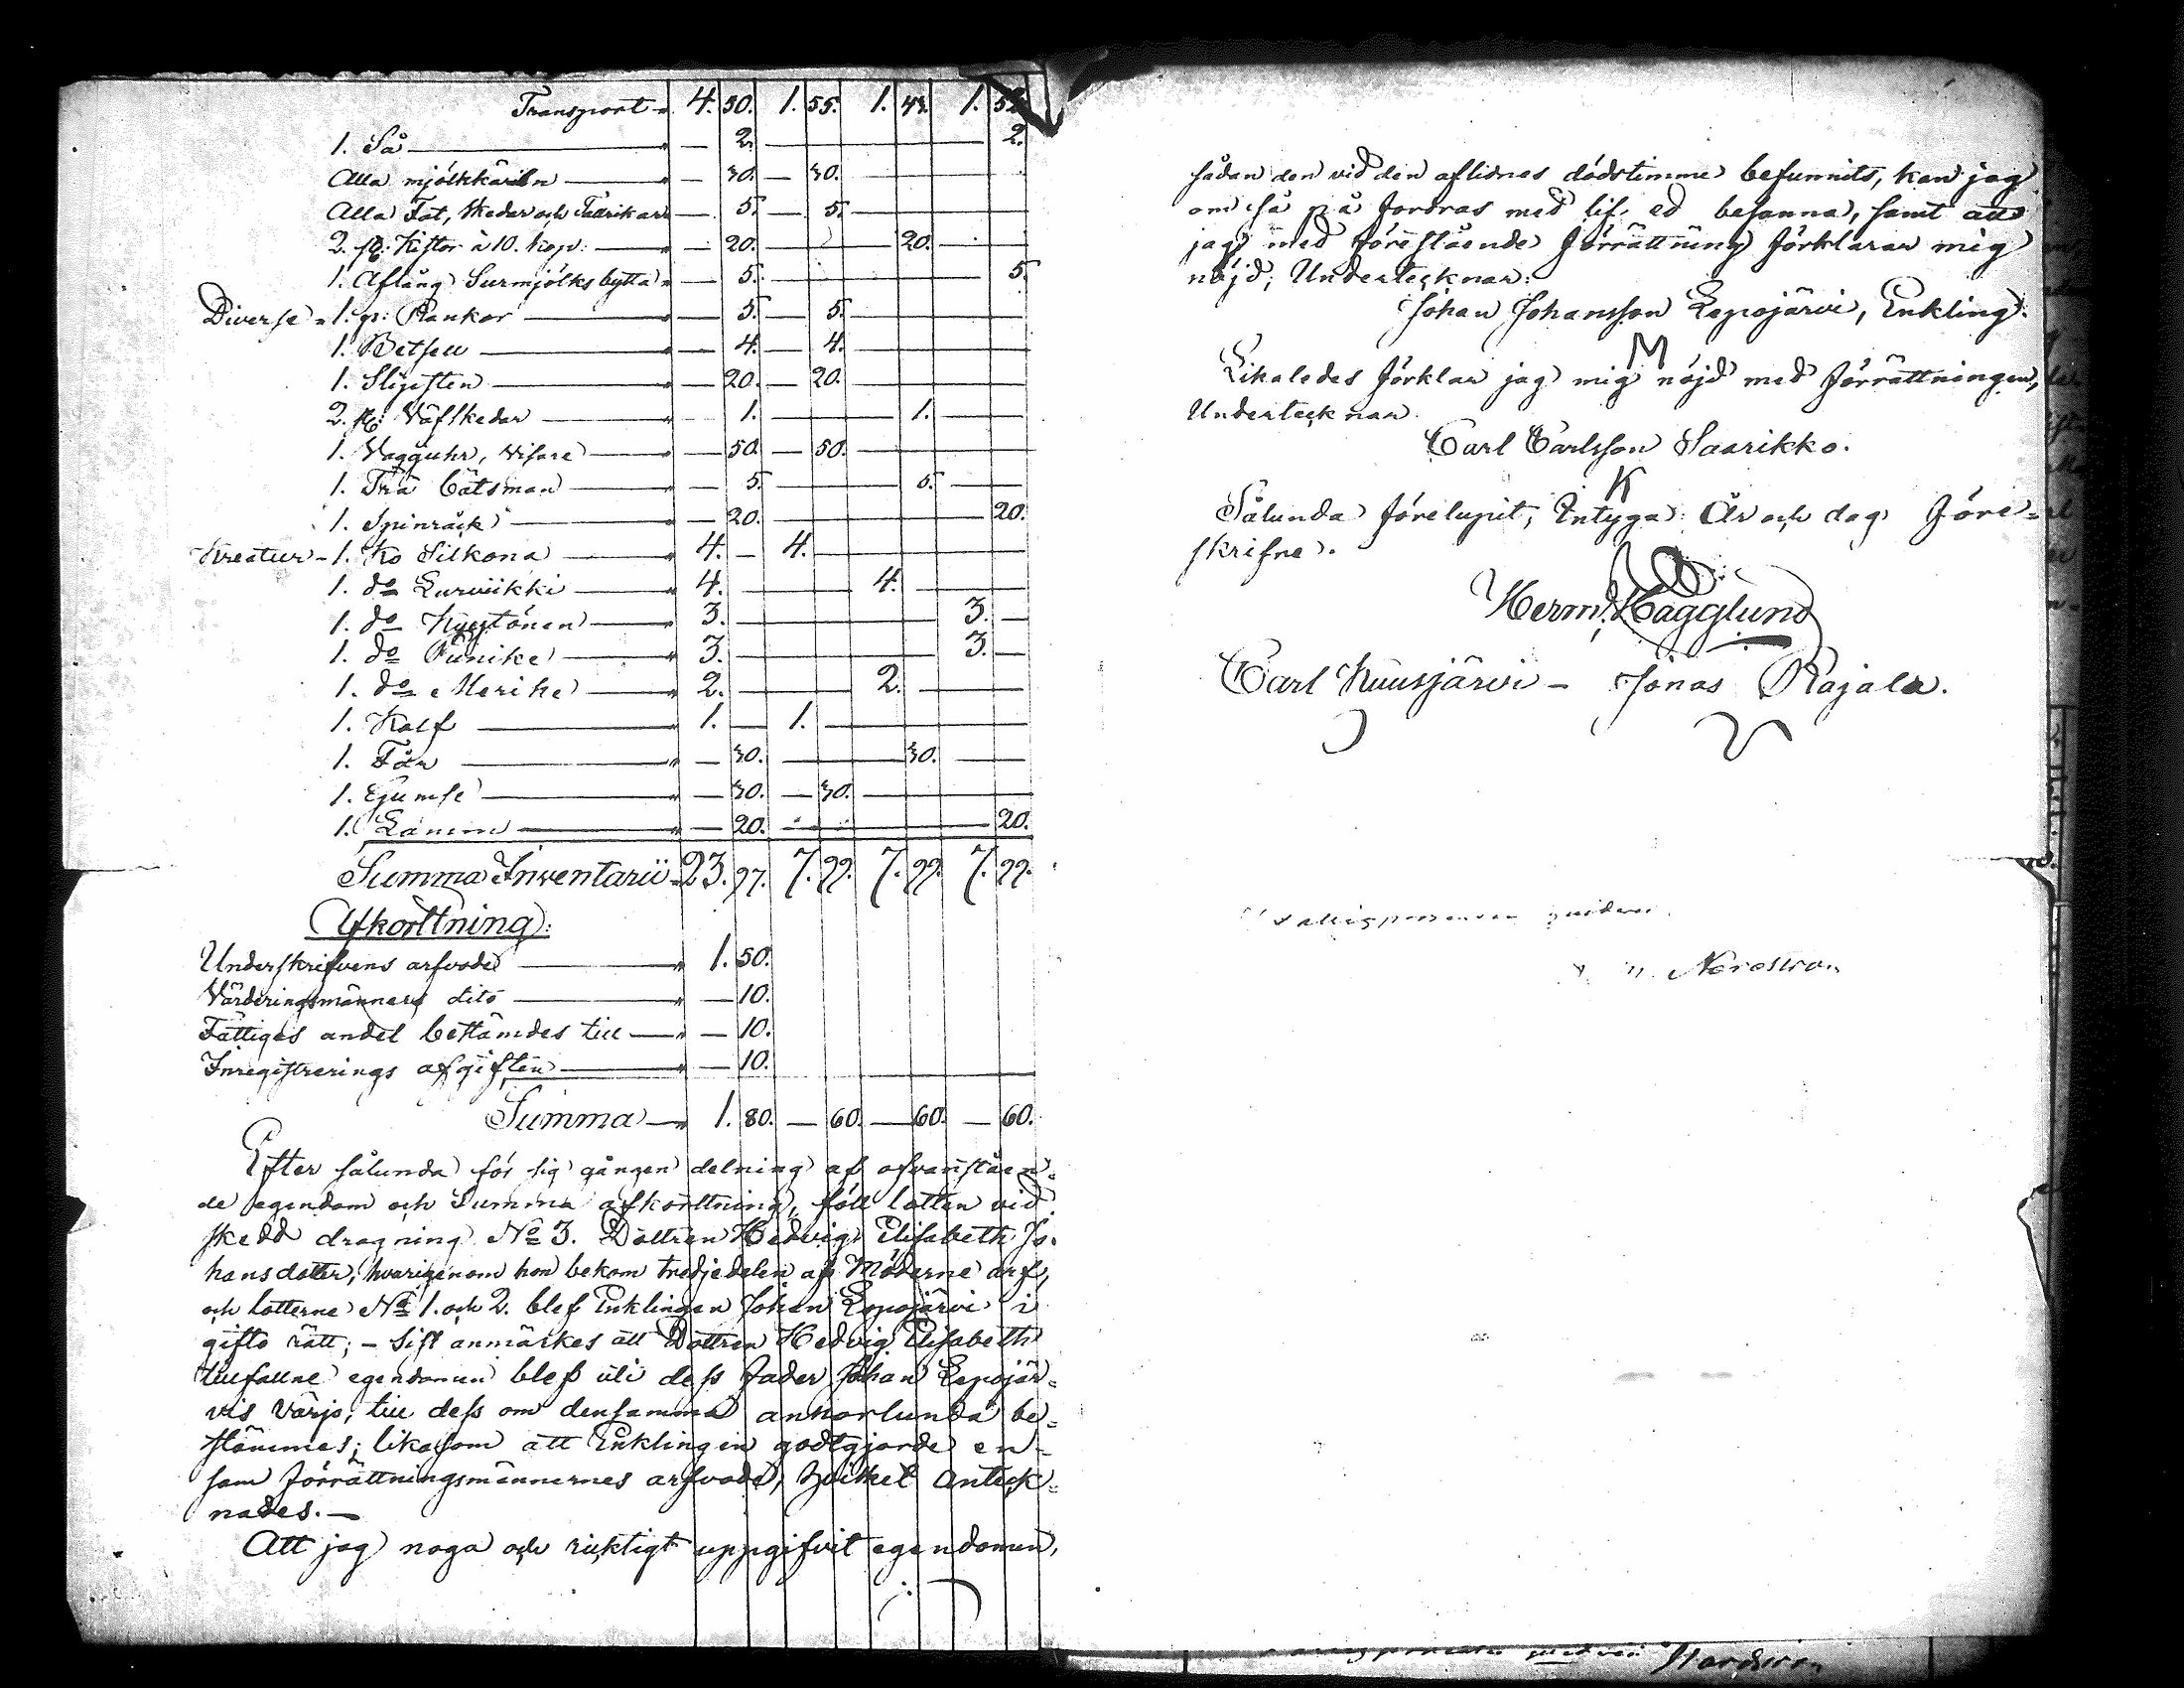 Transport " 4. 50. 1. 55. 1. 43. 1. 52.
1. Så — " — 2. — 2.
Alla mjölkkäriln — " — 30. — 30. —
Alla Fat, Skedar och Tallrikar " — 5. — 5. —
2. st: Kistor à 10. kop: — " — 20. — 20. —
1. Aflång Surmjölks bytta " — 5. — 5.
Diverse - 1. pr: Rankor — " — 5. — 5. —
1. Betsell — " — 4. — 4. —
1. Slipsten — " — 20. — 20. —
2. st: Väfskedar — " — 1. — 1. —
1. Vägguhr, visare — " — 50. — 50. —
1. Trä båtsman — " — 5. — 5. —
1. Spinråck — " — 20. — 20.
Kreatur - 1. Ko Silkona — " 4. — 4. —
1. do Lurviikki — " 4. — 4. —
1. do — " 3. — 3. —
1. do Punike — " 3. — 3. —
1. do Merike — " 2. — 2. —
1. Kalf — " 1. — 1. —
1. Får — " — 30. — 30. —
1. Gumse — " — 30. — 30. —
1. Lamm — " — 20. — 20.
Summa Inventarii " 23. 97. 7. 99. 7. 99. 7. 99.
Afkorttning:
Underskrifvens arfvode — " 1. 50.
Värderingsmänners dito — " — 10.
Fattiges andel bestämdes till — " — 10.
Inregistrerings afgiften — " — 10.
Summa — " 1. 80. — 60. — 60. — 60.
Efter sålunda för sig gången delning af ofvanståen-
de egendom och Summa afkorttning, föll lotten vid
skedd dragning No 3. Dottren Hedvig Elisabeth Jo-
hansdotter, hvarigenom hon bekom tredjedelen af Möderne arf,
och lotterne No 1. och 2. blef Enklingen Johan Lepojärvi i
gifto rätt; – Sist anmärkes att Dottren Hedvig Elisabeth
tillfallne egendomen blef uti dess Fader Johan Lepojär-
vis värjo, till dess om densamma annorlunda be-
stämmes; likasom att Enklingen godtgjorde en-
sam Förrättningsmännernes arfvode, hvilket anteck-
nades. —
Att jag noga och ricktigt uppgifvit egendomen,
sådan den vid den aflidnes dödstimme befunnits, kan jag
om så på fordras med lif. ed besanna, samt att
jag med föreståënde Förrättning förklarar mig
nöjd, Undertecknar:
Johan Johansson Lepojärvi, Enkling.
M
Likaledes förklar jag mig nöjd med Förrättningen,
Undertecknar
Carl Carlsson Saarikko.
K
Sålunda förelupit, Intyga År och dag Före-
skrifne.
Herm. Hägglund
Carl Kuusjärvi – Jonas Rajala.